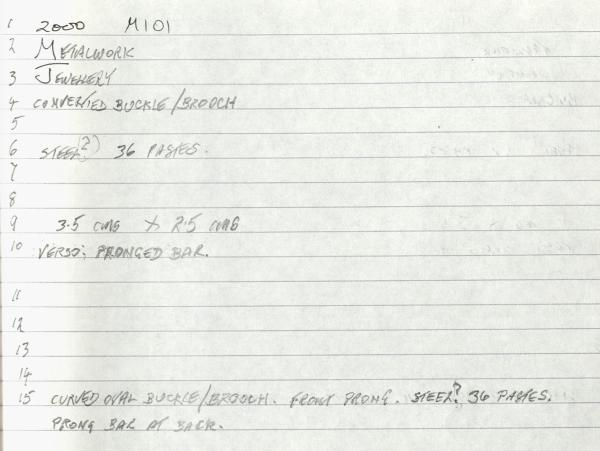 1 2000 M101
2 METALWORK
3 JEWELLERY
4 CONVERTED BUCKLE/BROOCH
5
6 STEEL(?) 36 PASTES.
7
8
9 3.5 cms X 2.5 cms
10 VERSO: PRONGED BAR.
11
12
13
14
15 CURVED OVAL BUCKLE/BROOCH. FRONT PRONG. STEEL? 36 PASTES.
PRONG BAR AT BACK.